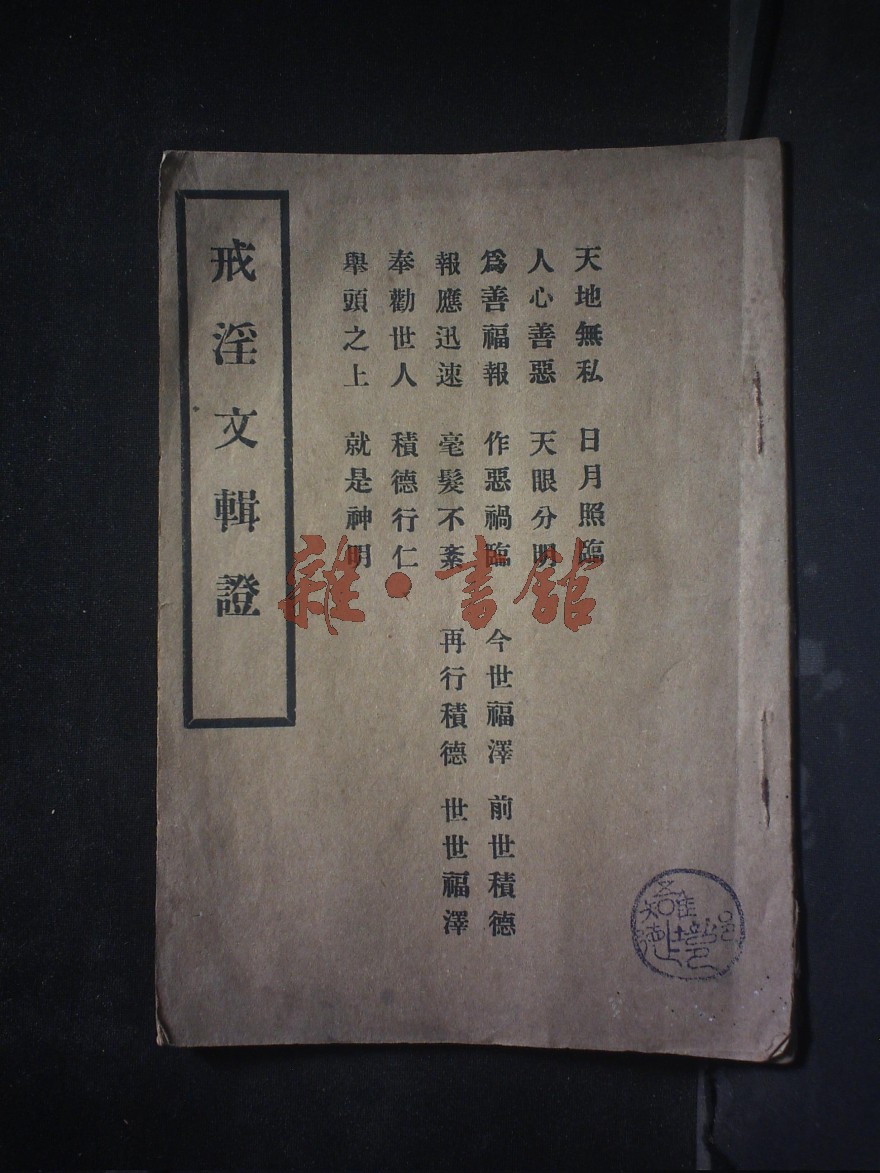 天地無私　日月照臨
人心善惡　天眼分明
爲善福報　作惡禍臨　今世福澤　前世積德
報應迅速　毫髮不紊　再行積德　世世福澤
奉勸世人　積德行仁
舉頭之上　就是神明
戒淫文輯證
雜·書舘